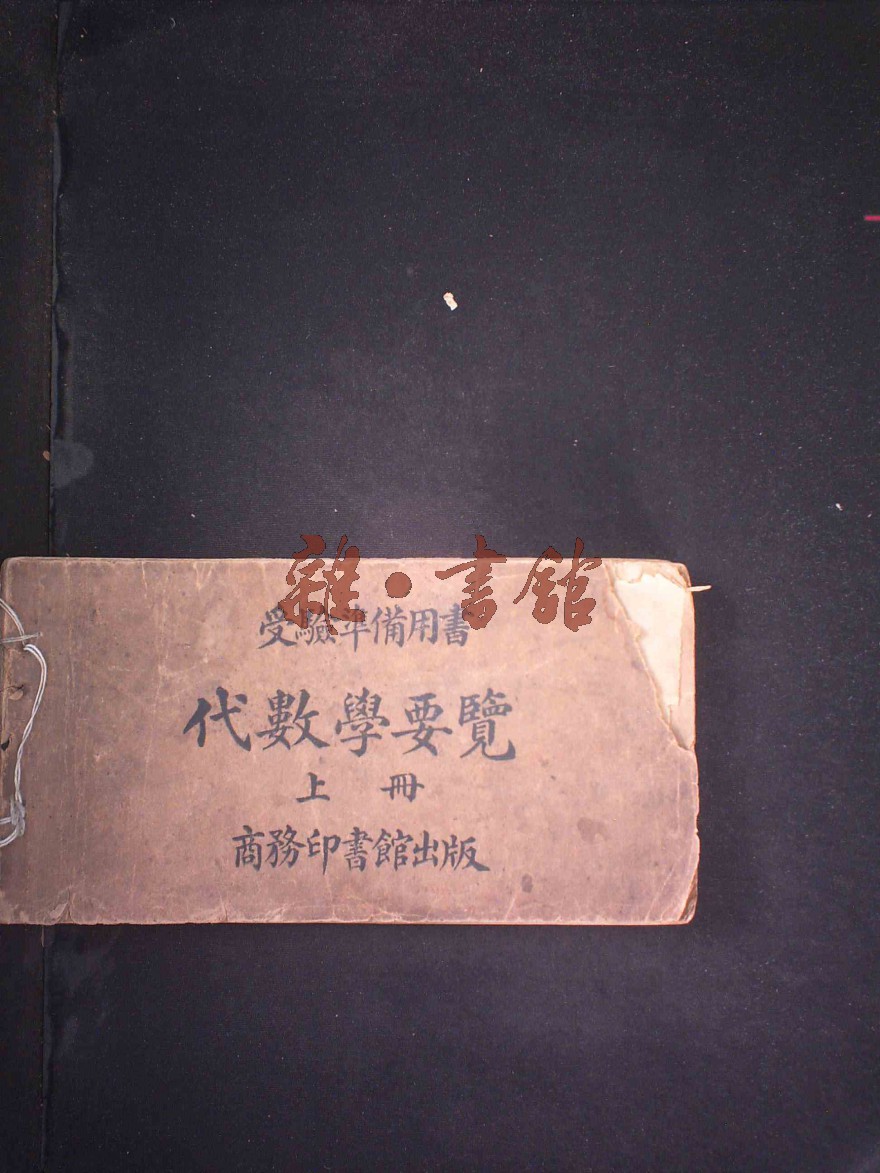 雜·書館
受驗準備用書
代數學要覽
上冊
商務印書館出版